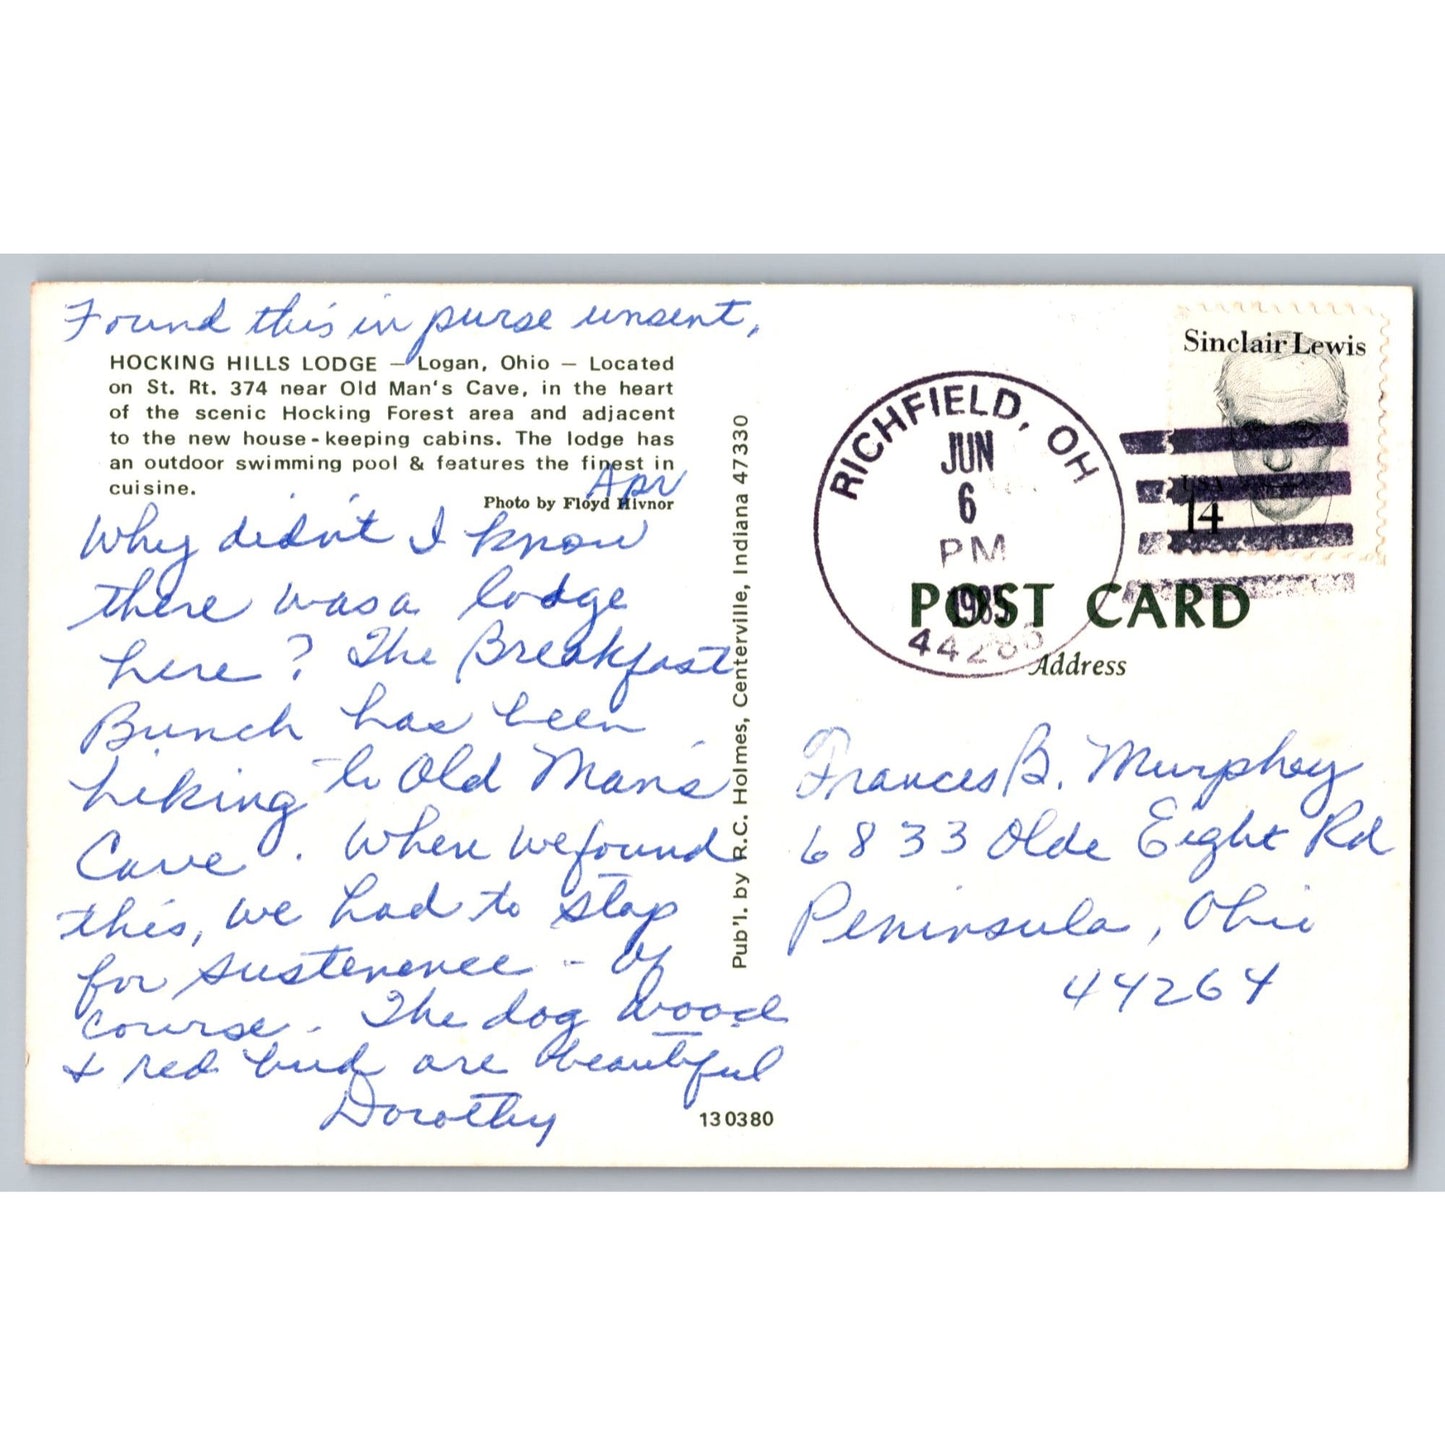 Found this in purse unsent,
HOCKING HILLS LODGE — Logan, Ohio — Located
on St. Rt. 374 near Old Man's Cave, in the heart
of the scenic Hocking Forest area and adjacent
to the new house-keeping cabins. The lodge has
an outdoor swimming pool & features the finest in
cuisine.
Photo by Floyd Hivnor
Apr
Why didn't I know
there was a lodge
here? The Breakfast
Bunch has been
hiking to Old Man's
Cave. When we found
this, we had to stop
for sustenence - of
course. The dog wood
& red bud are beautiful
Dorothy
130380
Pub'l. by R.C. Holmes, Centerville, Indiana 47330
RICHFIELD, OH
JUN
6
PM
1985
44286
Sinclair Lewis
USA
14
POST CARD
Address
Frances B. Murphey
6833 Olde Eight Rd
Peninsula, Ohio
44264